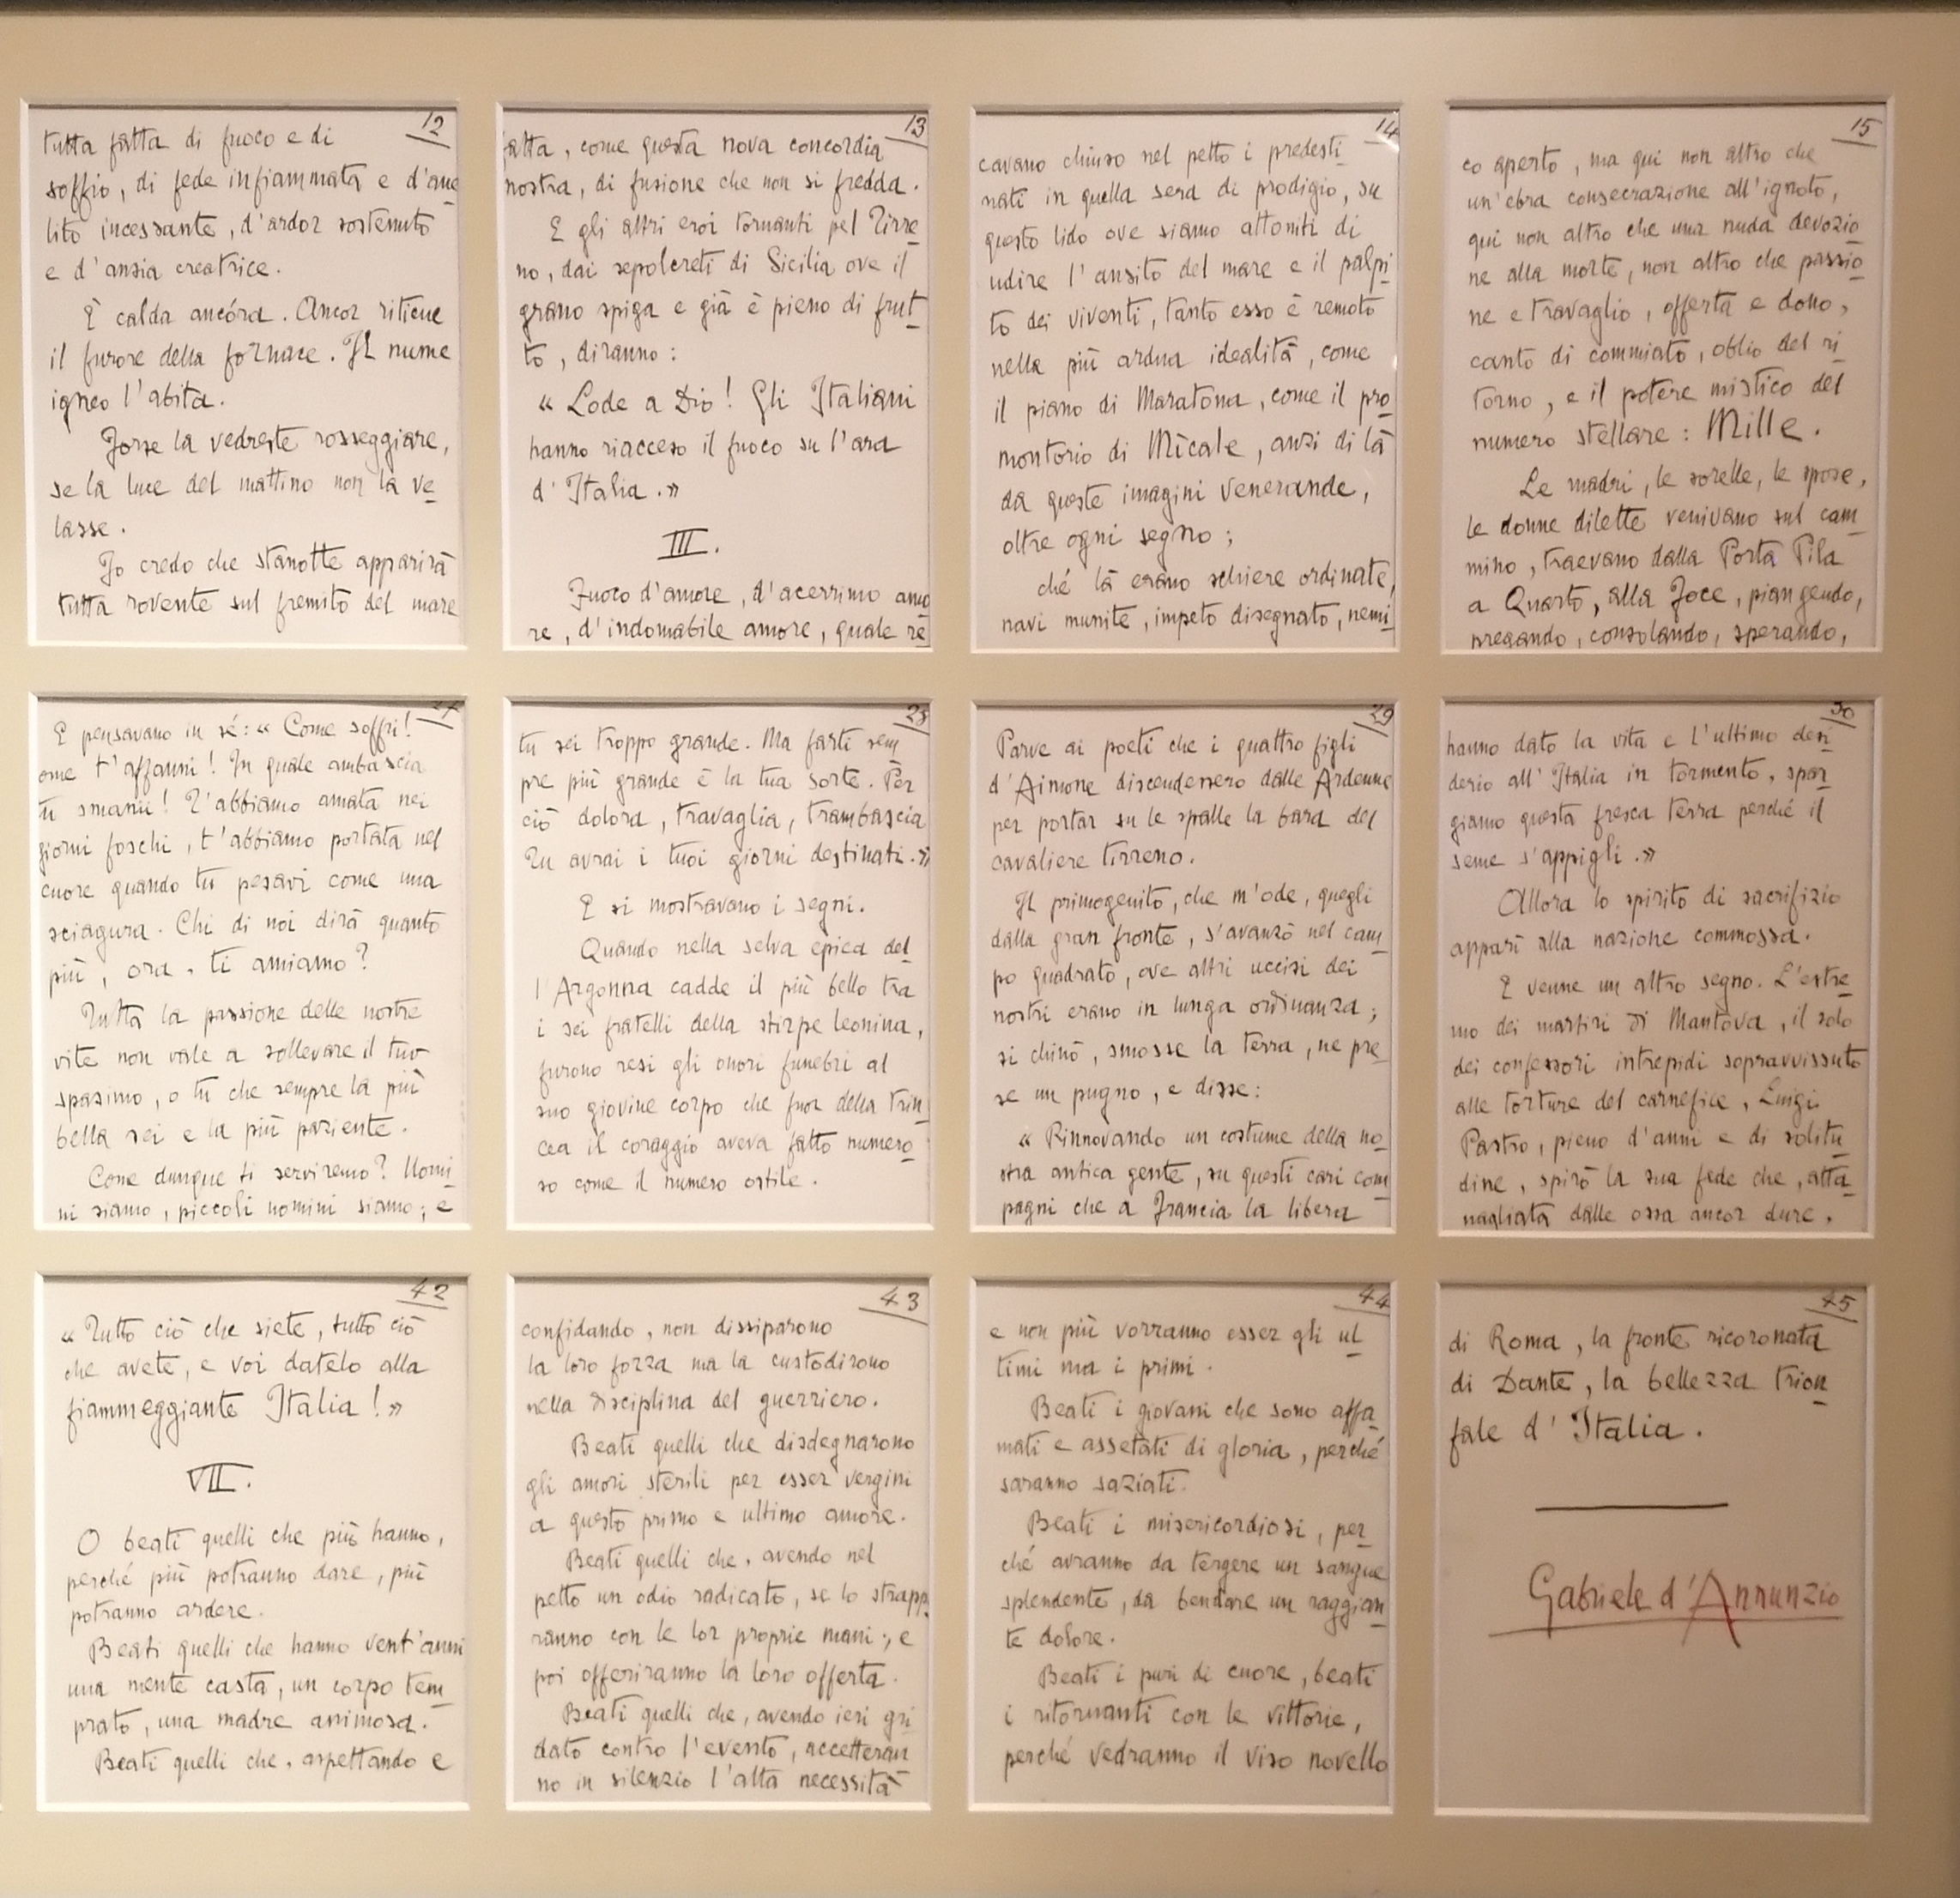 12
tutta fatta di fuoco e di
soffio, di fede infiammata e d'ane
lito incessante, d'ardor sostenuto
e d'ansia creatrice.
È calda ancóra. Ancor ritiene
il furore della fornace. Il nume
igneo l'abita.
Forse la vedreste rosseggiare,
se la luce del mattino non la ve_
lasse.
Io credo che stanotte apparirà
tutta rovente sul fremito del mare
13
fatta, come questa nova concordia
nostra, di fusione che non si fredda.
E gli altri eroi tornanti pel Tirre_
no, dai sepolcreti di Sicilia ove il
grano spiga e già è pieno di frut_
to, diranno:
« Lode a Dio! Gli Italiani
hanno riacceso il fuoco su l'ara
d'Italia.»
III.
Fuoco d'amore, d'acerrimo amo_
re, d'indomabile amore, quale re_
14
cavano chiuso nel petto i predesti_
nati in quella sera di prodigio, su
questo lido ove siamo attoniti di
udire l'ansito del mare e il palpi_
to dei viventi, tanto esso è remoto
nella più ardua idealità, come
il piano di Maratona, come il pro_
montorio di Mìcale, anzi di là
da queste imagini venerande,
oltre ogni segno;
ché là erano schiere ordinate,
navi munite, impeto disegnato, nemi_
15
co aperto, ma qui non altro che
un'ebra consecrazione all'ignoto,
qui non altro che una nuda devozio_
ne alla morte, non altro che passio_
ne e travaglio, offerta e dono,
canto di commiato, oblio del ri_
torno, e il potere mistico del
numero stellare: Mille.
Le madri, le sorelle, le spose,
le donne dilette venivano sul cam_
mino, traevano dalla Porta Pila
a Quarto, alla Foce, piangendo,
pregando, consolando, sperando,
27
E pensavano in sé: « Come soffri!
ome t'affanni! In quale ambascia
tu smanii! T'abbiamo amata nei
giorni foschi, t'abbiamo portata nel
cuore quando tu pesavi come una
sciagura. Chi di noi dirà quanto
più, ora, ti amiamo?
Tutta la passione delle nostre
vite non vale a sollevare il tuo
spasimo, o tu che sempre la più
bella sei e la più paziente.
Come dunque ti serviremo? Uomi_
ni siamo, piccoli uomini siamo; e
28
tu sei troppo grande. Ma farti sem_
pre più grande è la tua sorte. Per_
ciò dolora, travaglia, trambascia
Tu avrai i tuoi giorni destinati.»
E si mostravano i segni.
Quando nella selva epica del_
l'Argonna cadde il più bello tra
i sei fratelli della stirpe leonina,
furono resi gli onori funebri al
suo giovine corpo che fuor della trin_
cea il coraggio aveva fatto numero_
so come il numero ostile.
29
Parve ai poeti che i quattro figli
d'Aimone discendessero dalle Ardenne
per portar su le spalle la bara del
cavaliere tirreno.
Il primogenito, che m'ode, quegli
dalla gran fronte, s'avanzò nel cam_
po quadrato, ove altri uccisi dei
nostri erano in lunga ordinanza;
si chinò, smosse la terra, ne pre_
se un pugno, e disse:
« Rinnovando un costume della no_
stra antica gente, su questi cari com_
pagni che a Francia la libera
30
hanno dato la vita e l'ultimo desi_
derio all'Italia in tormento, spar_
giamo questa fresca terra perché il
seme s'appigli.»
Allora lo spirito di sacrifizio
apparì alla nazione commossa.
E venne un altro segno. L'estre_
mo dei martiri di Mantova, il solo
dei confessori intrepidi sopravvissuto
alle torture del carnefice, Luigi
Pastro, pieno d'anni e di solitu_
dine, spirò la sua fede che, atta_
nagliata dalle ossa ancor dure,
42
« Tutto ciò che siete, tutto ciò
che avete, e voi datelo alla
fiammeggiante Italia!»
VII.
O beati quelli che più hanno,
perché più potranno dare, più
potranno ardere.
Beati quelli che hanno vent'anni
una mente casta, un corpo tem_
prato, una madre animosa.
Beati quelli che, aspettando e
43
confidando, non dissiparono
la loro forza ma la custodirono
nella disciplina del guerriero.
Beati quelli che disdegnarono
gli amori sterili per esser vergini
a questo primo e ultimo amore.
Beati quelli che, avendo nel
petto un odio radicato, se lo strapp_
ranno con le lor proprie mani; e
poi offeriranno la loro offerta.
Beati quelli che, avendo ieri gri_
dato contro l'evento, accetteran_
no in silenzio l'alta necessità
44
e non più vorranno esser gli ul_
timi ma i primi.
Beati i giovani che sono affa_
mati e assetati di gloria, perché
saranno saziati.
Beati i misericordiosi, per_
ché avranno da tergere un sangue
splendente, da bendare un raggian_
te dolore.
Beati i puri di cuore, beati
i ritornanti con le vittorie,
perché vedranno il viso novello
45
di Roma, la fronte ricoronata
di Dante, la bellezza trion_
fale d'Italia.
Gabriele d'Annunzio